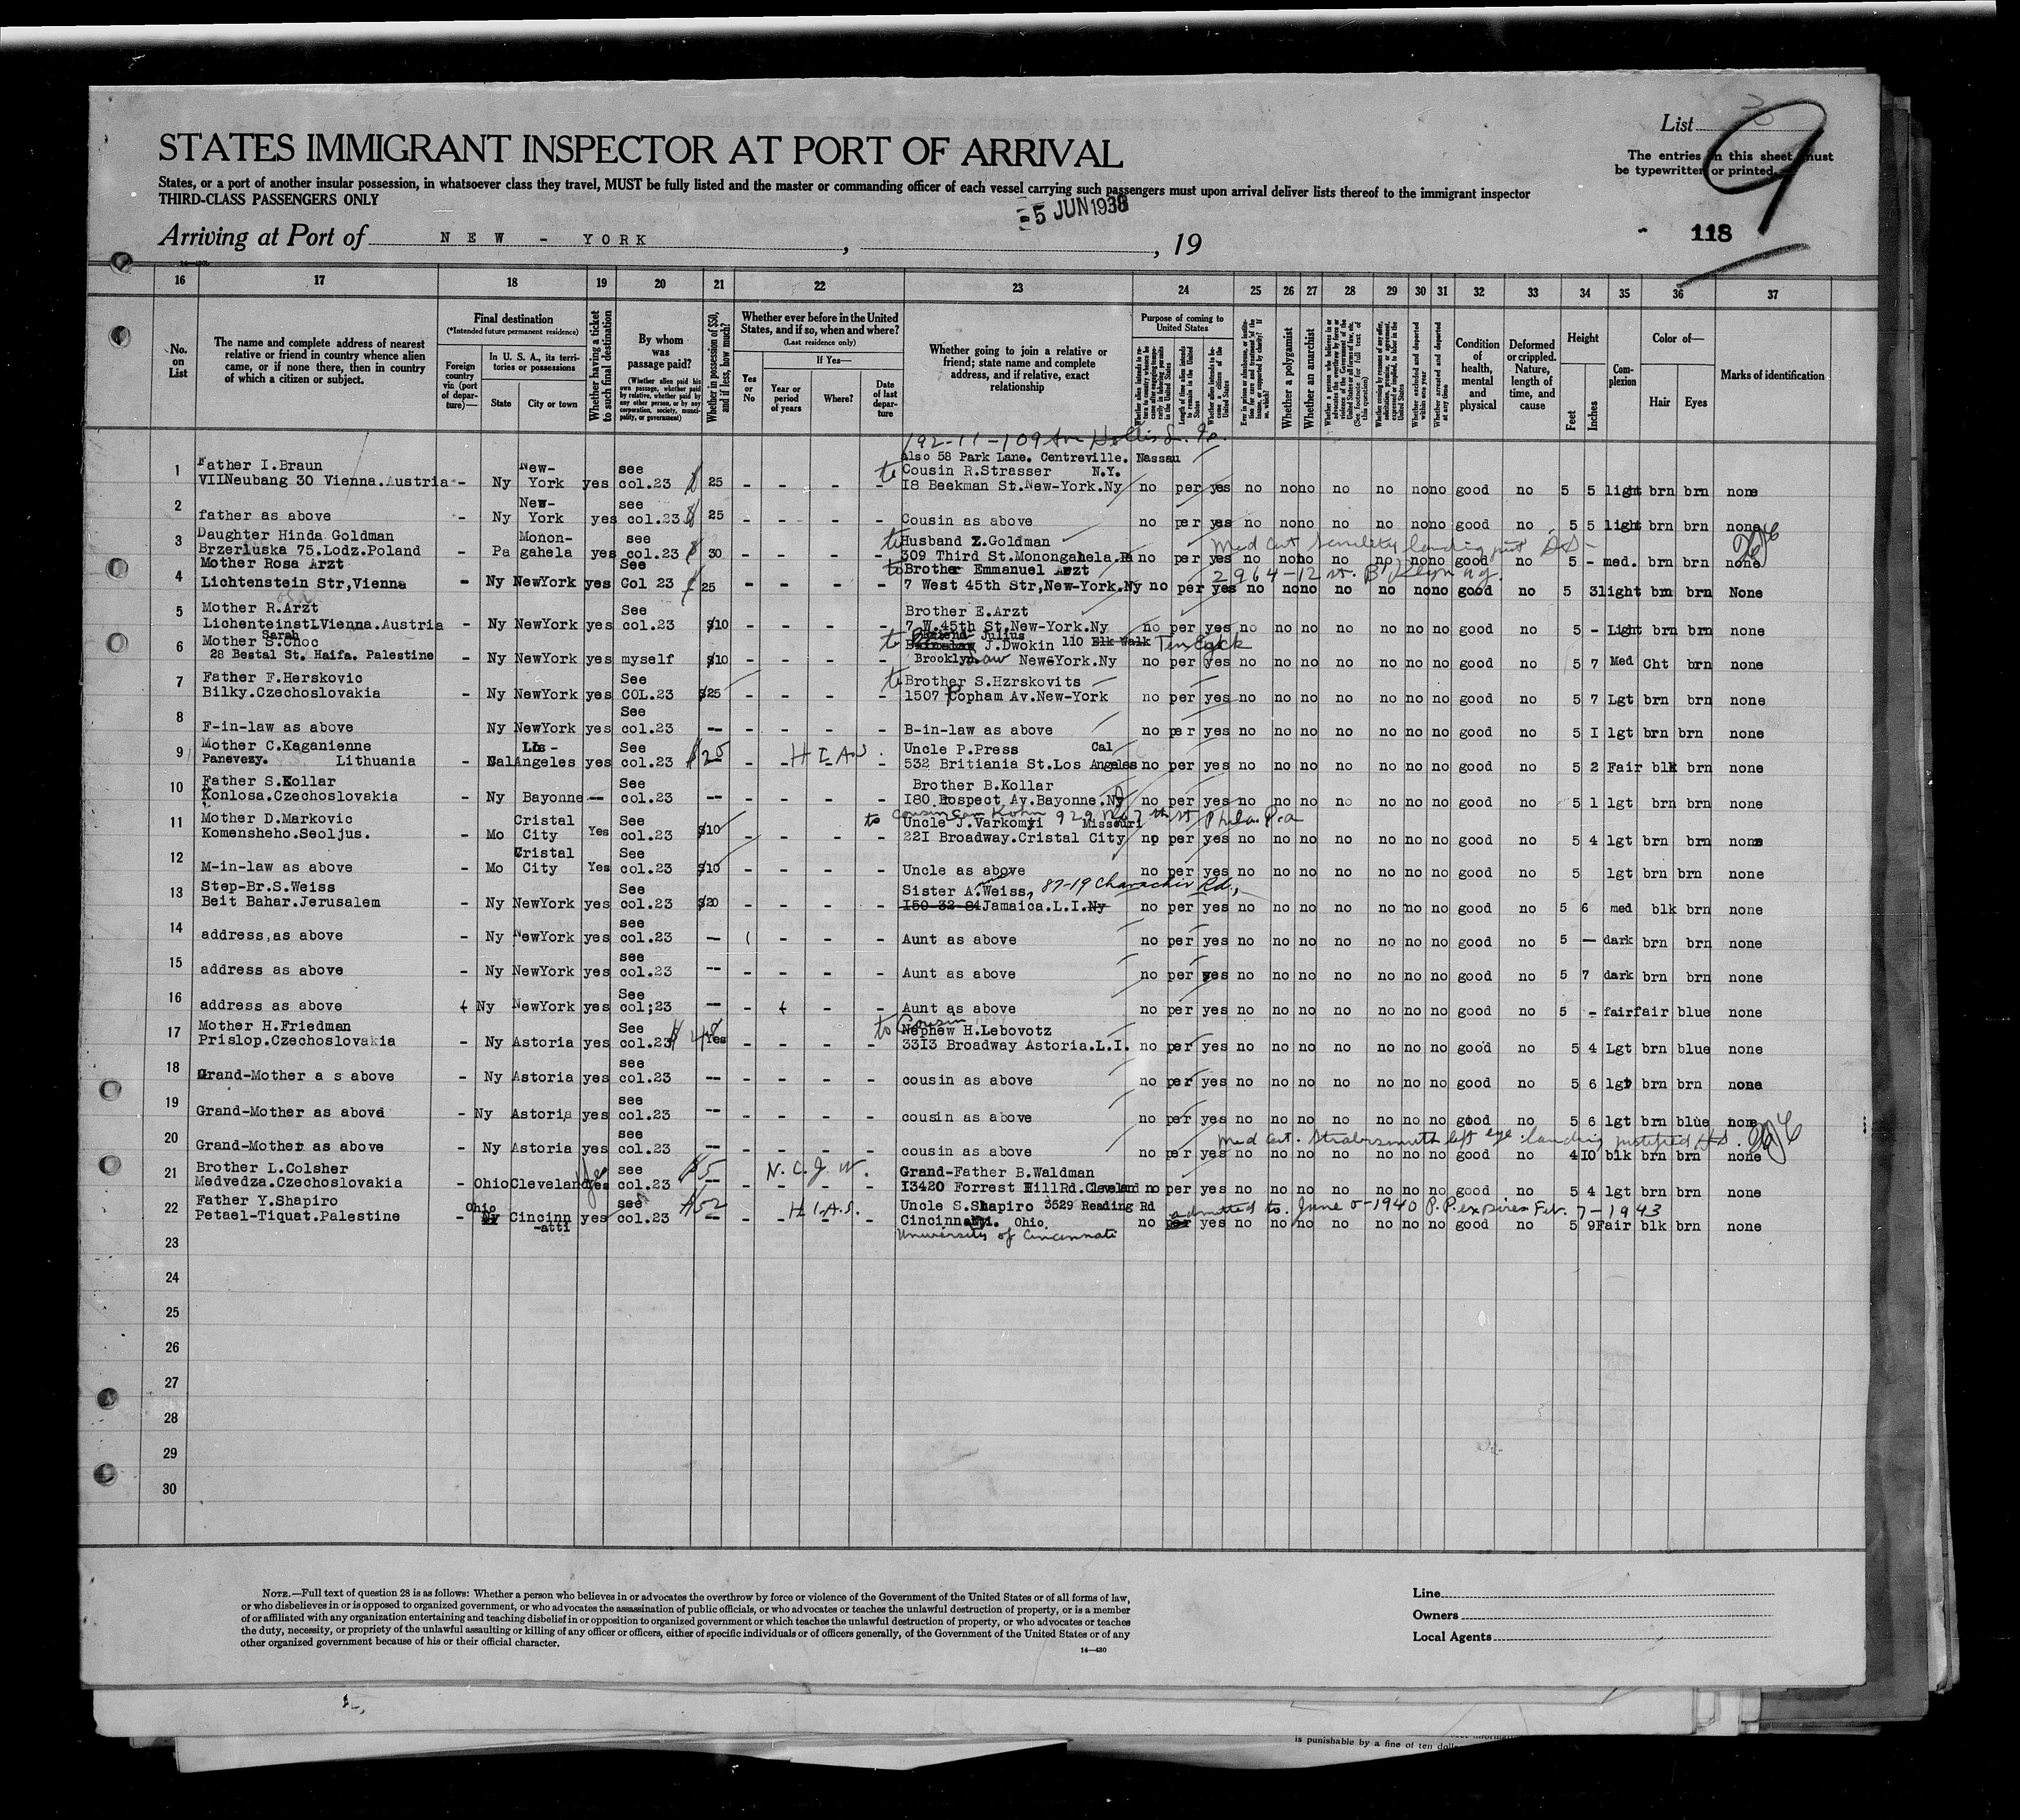 List 3
9
STATES IMMIGRANT INSPECTOR AT PORT OF ARRIVAL
The entries on this sheet must
be typewritten or printed.
States, or a port of another insular possession, in whatsoever class they travel, MUST be fully listed and the master or commanding officer of each vessel carrying such passengers must upon arrival deliver lists thereof to the immigrant inspector
THIRD-CLASS PASSENGERS ONLY
-5 JUN 1938
Arriving at Port of NEW - YORK , , 19
118
16 17 18 19 20 21 22 23 24 25 26 27 28 29 30 31 32 33 34 35 36 37
No. on List
The name and complete address of nearest relative or friend in country whence alien came, or if none there, then in country of which a citizen or subject.
Final destination
(*Intended future permanent residence)
Foreign country via (port of departure)—
In U. S. A., its territories or possessions
State
City or town
Whether having a ticket to such final destination
By whom was passage paid?
(Whether alien paid his own passage, whether paid by relative, whether paid by any other person, or by any corporation, society, municipality, or government)
Whether in possession of $50, and if less, how much?
Whether ever before in the United States, and if so, when and where?
(Last residence only)
Yes or No
If Yes—
Year or period of years
Where?
Date of last departure
Whether going to join a relative or friend; state name and complete address, and if relative, exact relationship
Purpose of coming to United States
Length of time alien intends to remain in the United States
Whether alien intends to become a citizen of the United States
Whether a polygamist
Whether an anarchist
Whether arrested and deported at any time
Condition of health, mental and physical
Deformed or crippled. Nature, length of time, and cause
Height
Feet
Inches
Complexion
Color of—
Hair
Eyes
Marks of identification
192-11-109 Ave Hollis
also 58 Park Lane. Centreville. Nassau
1 Father I.Braun New- see to Cousin R.Strasser N.Y.
VIINeubang 30 Vienna.Austria - Ny York yes col.23 $ 25 - - - - I8 Beekman St.New-York.Ny no per yes no no no no no no no good no 5 5 light brn brn none
2 New- see
father as above - Ny York yes col.23 $ 25 - - - - Cousin as above no per yes no no no no no no no good no 5 5 light brn brn none
3 Daughter Hinda Goldman Monon- see to Husband Z.Goldman
Brzerluska 75.Lodz.Poland - Pa gahela yes col.23 $ 30 - - - - 309 Third St.Monongahela.Pa no per yes no no no no no no no good no 5 - med. brn brn none
Med Cert Senility landing
4 Mother Rosa Arzt See to Brother Emmanuel Arzt 2964-12 st. B'klyn ny.
Lichtenstein Str,Vienna - Ny NewYork yes Col 23 $ 25 - - - - 7 West 45th Str,New-York.Ny no per yes no no no no no no no good no 5 3 light brn brn None
5 Mother R.Arzt See Brother E.Arzt
LichenteinstLVienna.Austria - Ny NewYork yes col.23 $10 - - - - 7 W.45th St.New-York.Ny no per yes no no no no no no no good no 5 - Light brn brn none
6 Mother S.Choc Sarah to Julius J.Dwokin 110 Elk Walk Ten Eyck
28 Bestal St. Haifa. Palestine - Ny NewYork yes myself $10 - - - - Brooklyn NewYork.Ny no per yes no no no no no no no good no 5 7 Med Cht brn none
7 Father F.Herskovic See to Brother S.Hzrskovits
Bilky.Czechoslovakia - Ny NewYork yes COL.23 $25 - - - - 1507 Popham Av.New-York no per yes no no no no no no no good no 5 7 Lgt brn brn none
8 See
F-in-law as above Ny NewYork yes col.23 -- - - - - B-in-law as above no per yes no no no no no no no good no 5 I lgt brn brn none
9 Mother C.Kaganienne Los - See Uncle P.Press Cal
Panevezy. Lithuania - Cal Angeles yes col.23 $25 - H I A S - 532 Britiania St.Los Angeles no per yes no no no no no no no good no 5 2 Fair blk brn none
10 Father S.Kollar See Brother B.Kollar
Konlosa.Czechoslovakia - Ny Bayonne -- col.23 -- - - - - I80 Rospect Ay.Bayonne.NJ no per yes no no no no no no no good no 5 1 lgt brn brn none
to Cousin Sam Kohn 929 N. 7th st Phila. Pa
11 Mother D.Markovic Cristal See Uncle J.Varkomyi Missouri
Komensheho.Seoljus. - Mo City Yes col.23 $10 - - - - 22I Broadway.Cristal City no per yes no no no no no no no good no 5 4 lgt brn brn none
12 Cristal See
M-in-law as above - Mo City Yes col.23 $10 - - - - Uncle as above no per yes no no no no no no no good no 5 lgt brn brn none
13 Step-Br.S.Weiss See Sister A.Weiss, 87-19 Rd,
Beit Bahar.Jerusalem - Ny NewYork yes col.23 $20 - - - - I50-32-84 Jamaica.L.I.Ny no per yes no no no no no no no good no 5 6 med blk brn none
14 see
address,as above - Ny NewYork yes col.23 -- ( - - - Aunt as above no per yes no no no no no no no good no 5 -- dark brn brn none
15 see
address as above - Ny NewYork yes col.23 -- - - - - Aunt as above no per yes no no no no no no no good no 5 7 dark brn brn none
16 See
address as above Ny NewYork yes col;23 -- - - - - Aunt as above no per yes no no no no no no no good no 5 - fair fair blue none
17 Mother H.Friedman See to Cousin Nephew H.Lebovotz
Prislop.Czechoslovakia - Ny Astoria yes col.23 $ 48 Yes - - - - 33I3 Broadway Astoria.L.I. no per yes no no no no no no no good no 5 4 Lgt brn blue none
18 see
Grand-Mother a s above - Ny Astoria yes col.23 -- - - - - cousin as above no per yes no no no no no no no good no 5 6 lgt brn brn none
19 see
Grand-Mother as above - Ny Astoria yes col.23 -- - - - - cousin as above no per yes no no no no no no no good no 5 6 lgt brn blue none
20 see Med Cert. left eye. landing
Grand-Mother as above - Ny Astoria yes col.23 -- - - - - cousin as above no per yes no no no no no no no good no 4 IO blk brn brn none
21 Brother L.Colsher see $5 N. C. J. W. Grand-Father B.Waldman
Medvedza.Czechoslovakia - Ohio Cleveland Yes col.23 -- - - - - I3420 Forrest HillRd.Cleveland no per yes no no no no no no no good no 5 4 lgt brn brn none
22 Father Y.Shapiro Ohio see $52 H.I.A.S. Uncle S.Shapiro 3529 Reading Rd admitted to. June 5-1940 P.P. expires Feb. 7-1943
Petael-Tiquat.Palestine - Ny Cincinn-atti yes col.23 -- - - - - Cincinnati. Ohio. no per yes no no no no no no no good no 5 9 Fair blk brn none
University of Cincinnati
23
24
25
26
27
28
29
30
NOTE.—Full text of question 28 is as follows: Whether a person who believes in or advocates the overthrow by force or violence of the Government of the United States or of all forms of law,
or who disbelieves in or is opposed to organized government, or who advocates the assassination of public officials, or who advocates or teaches the unlawful destruction of property, or is a member
of or affiliated with any organization entertaining and teaching disbelief in or opposition to organized government or which teaches the unlawful destruction of property, or who advocates or teaches
the duty, necessity, or propriety of the unlawful assaulting or killing of any officer or officers, either of specific individuals or of officers generally, of the Government of the United States or of any
other organized government because of his or their official character.
14—430
Line
Owners
Local Agents
is punishable by a fine of ten